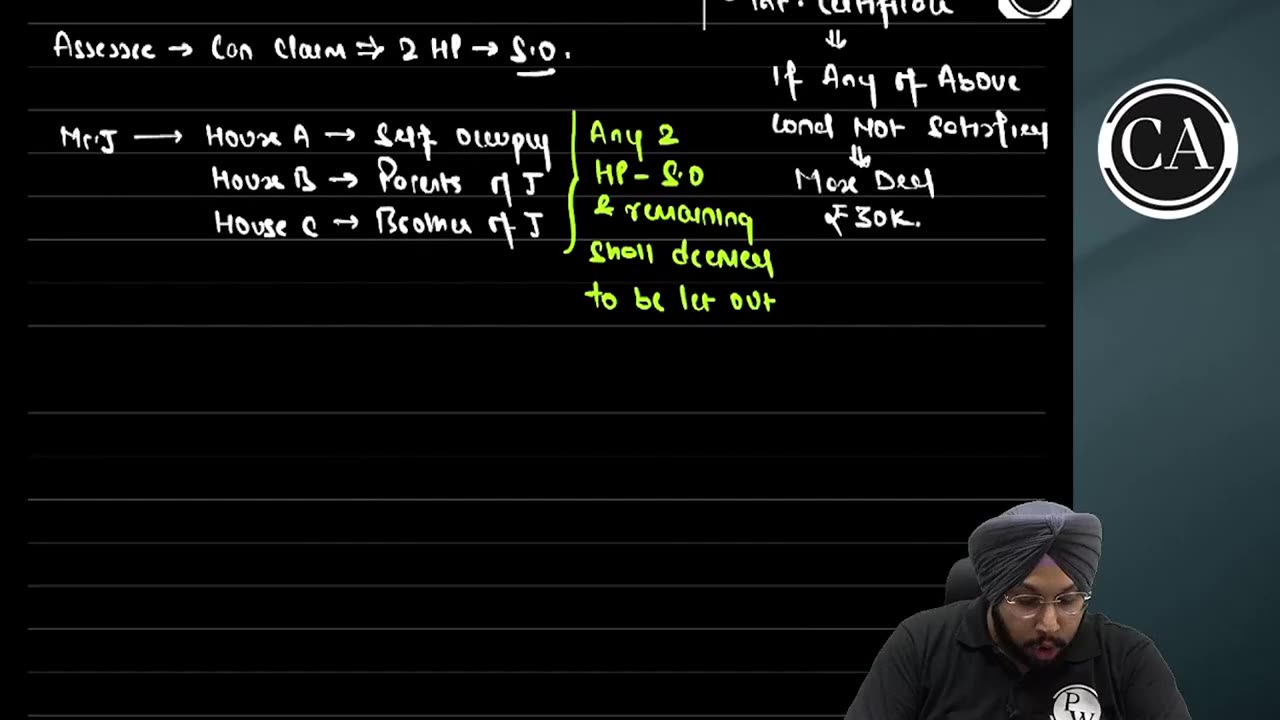 Int. Certificate
Assessee → Can Claim ⇒ 2 HP → S.O.
⇓
If Any of Above
Cond Not Satisfied
⇓
Max Ded
₹30K.
Mr. J → House A → Self occupy
House B → Parents of J
House C → Brother of J
Any 2
HP - S.O
& remaining
shall deemed
to be let out
CA
P
W